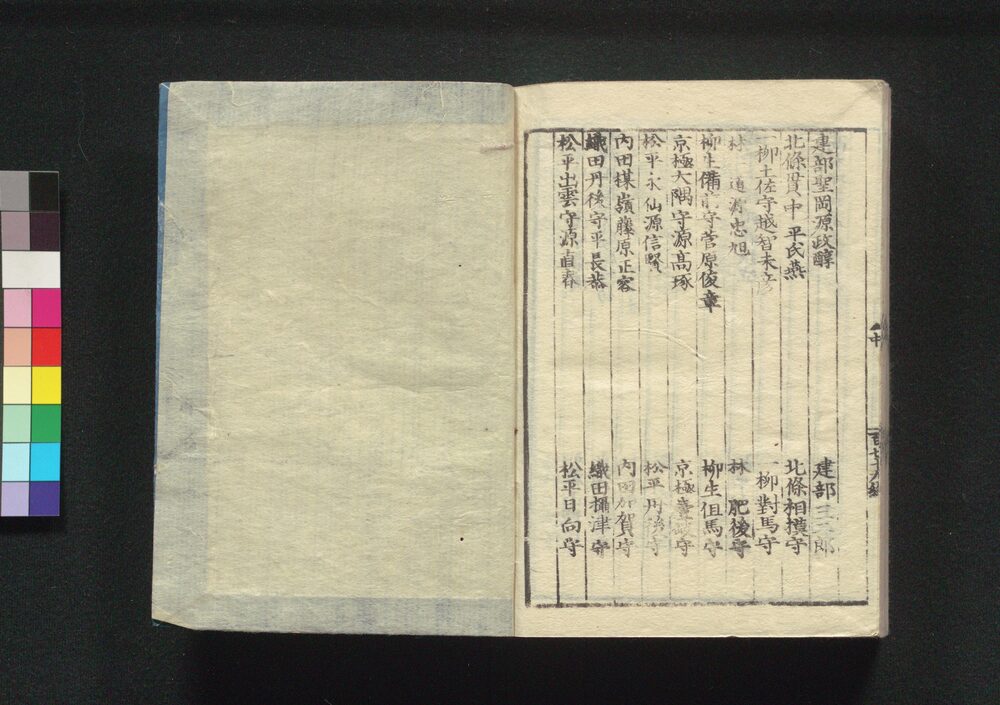 建部聖岡源政醇 建部三二郎
北條貫中平氏燕 北條相摸守
一柳土佐守越智末彦 一柳對馬守
林 道淵忠旭 林 肥後守
柳生備前守菅原俊章 柳生但馬守
京極大隅守源高琢 京極
松平永仙源信賢 松平丹後守
内田棋嶺藤原正容 内田加賀守
織田丹後守平長恭 織田攝津守
松平出雲守源直春 松平日向守
中